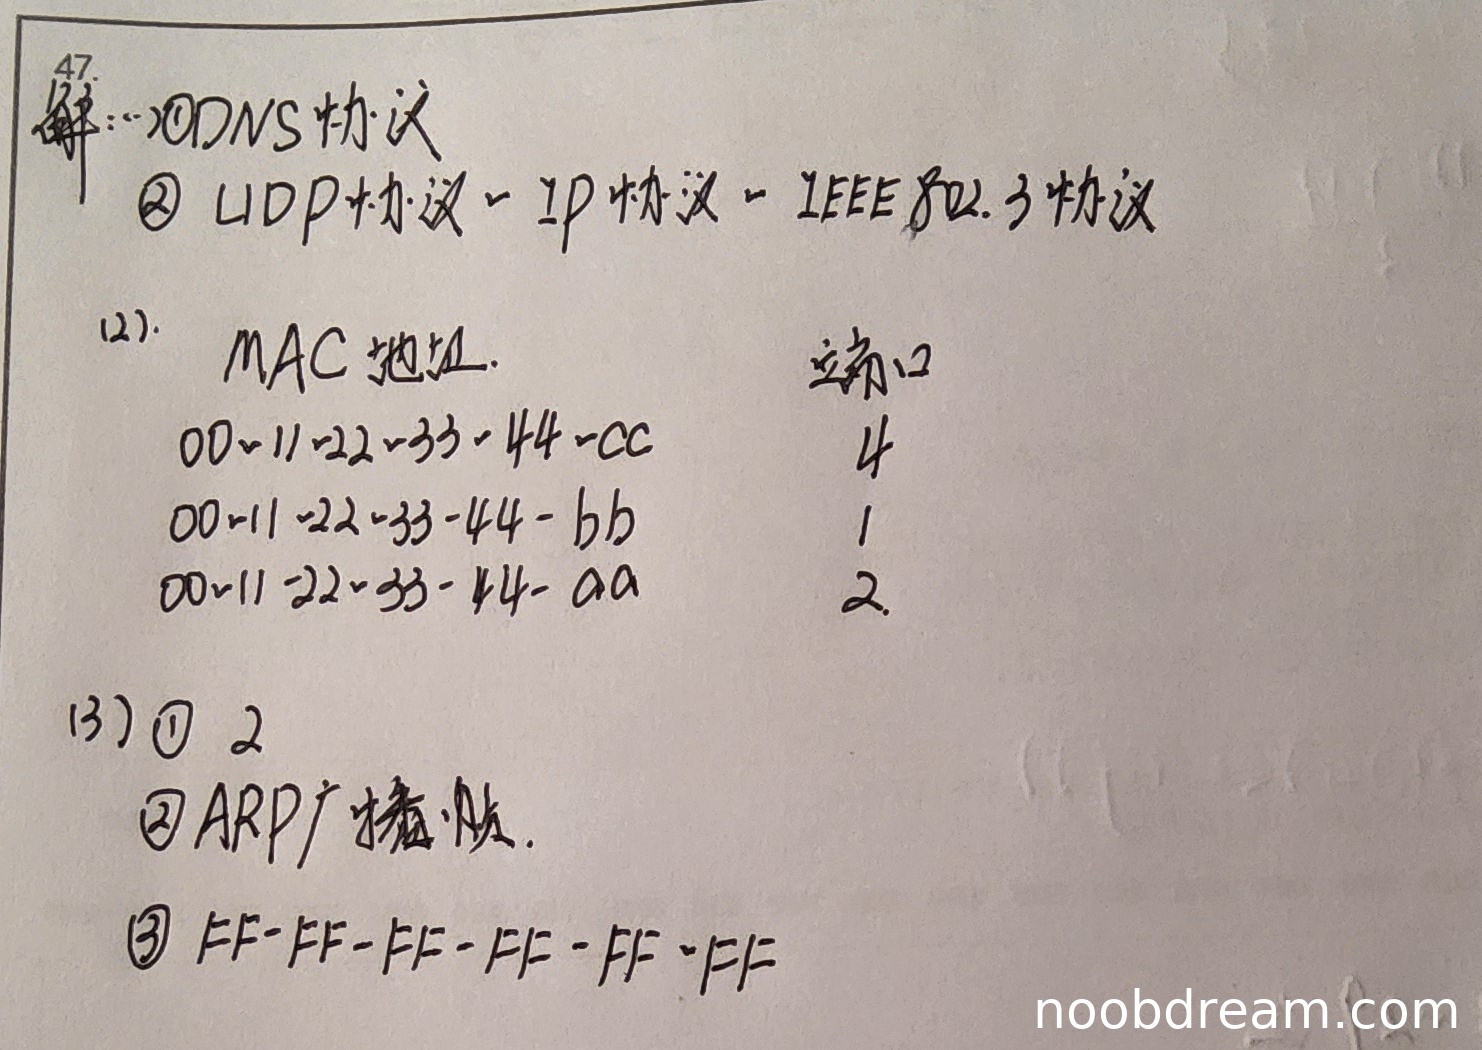 47.
解:(1)①DNS协议
②UDP协议-IP协议-IEEE802.3协议
(2). MAC地址. 端口
00-11-22-33-44-cc 4
00-11-22-33-44-bb 1
00-11-22-33-44-aa 2.
(3)① 2
②ARP广播帧.
③FF-FF-FF-FF-FF-FF
noobdream.com